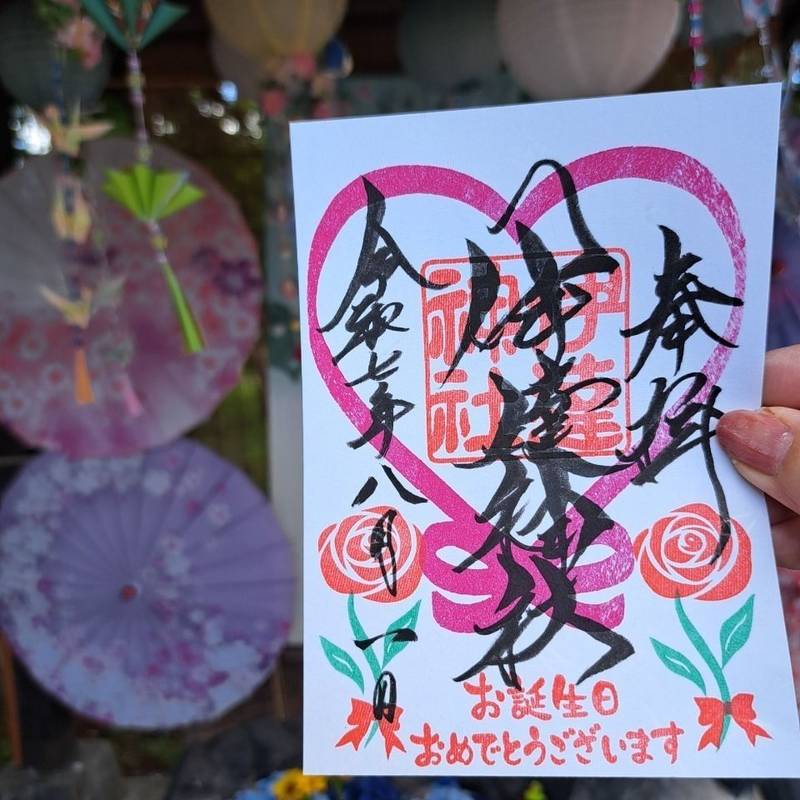 奉拝
伊達神社
伊達
神社
令和七年八月一日
お誕生日
おめでとうございます